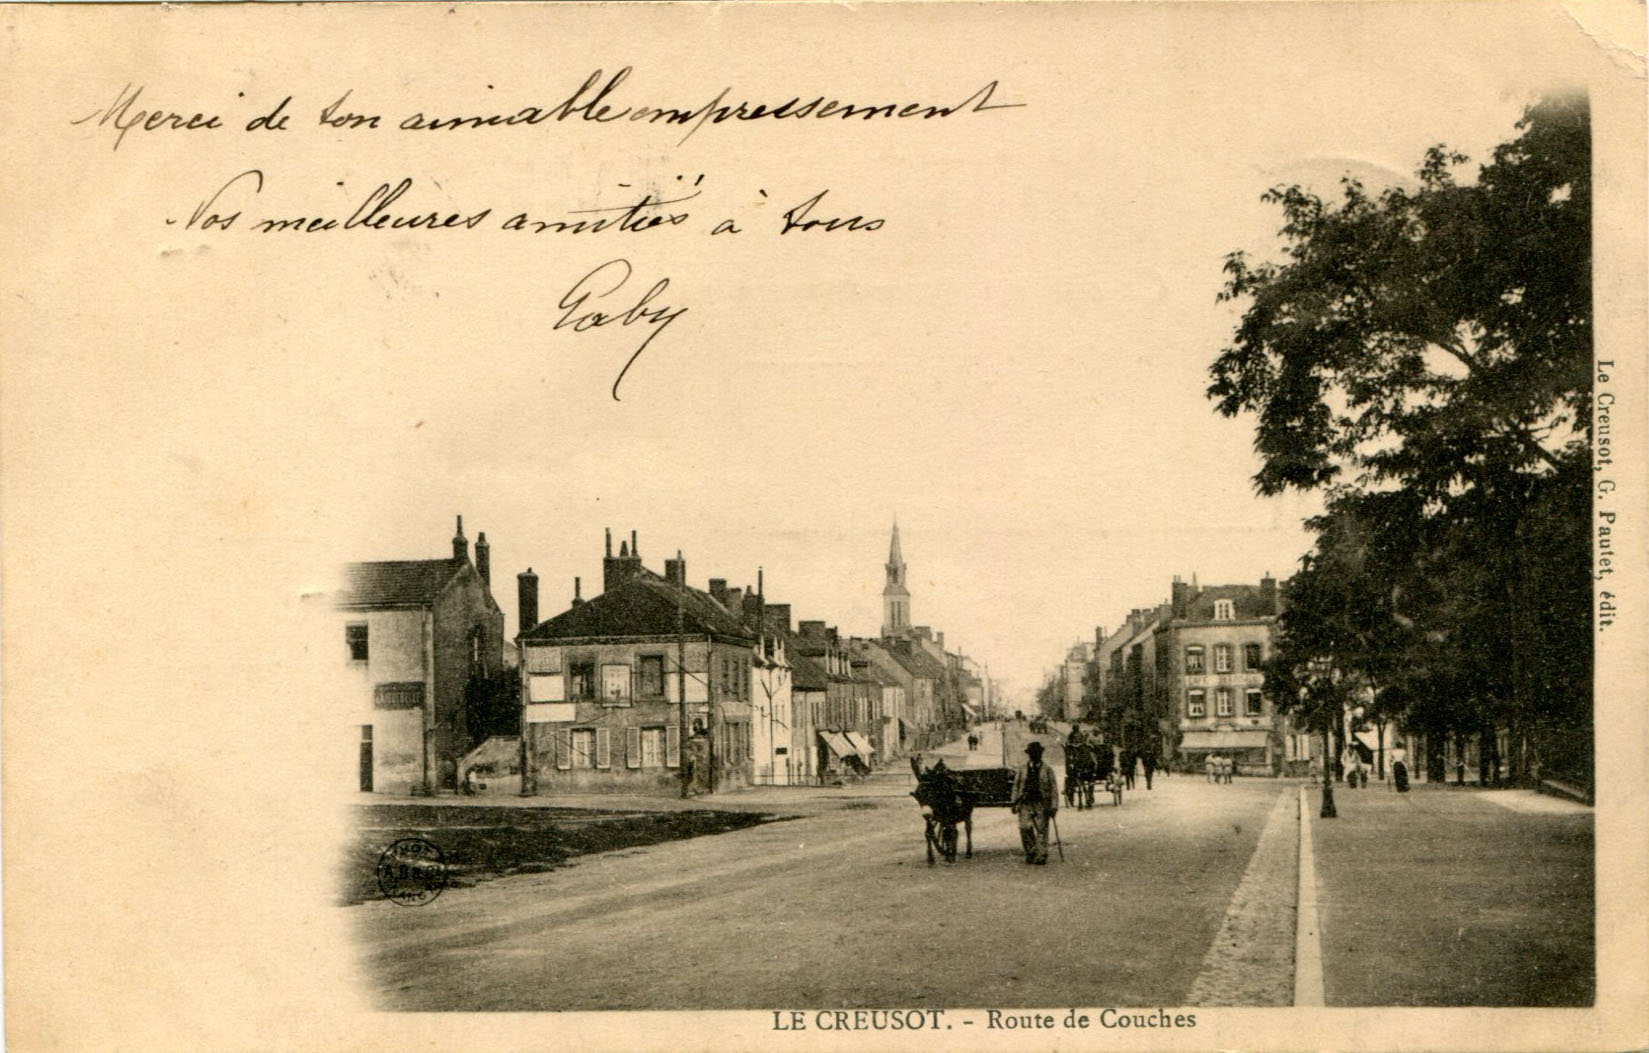 Merci de ton aimable empressement
Nos meilleures amitiés à tous
Gaby
Le Creusot, G. Pautet, édit.
LE CREUSOT. - Route de Couches